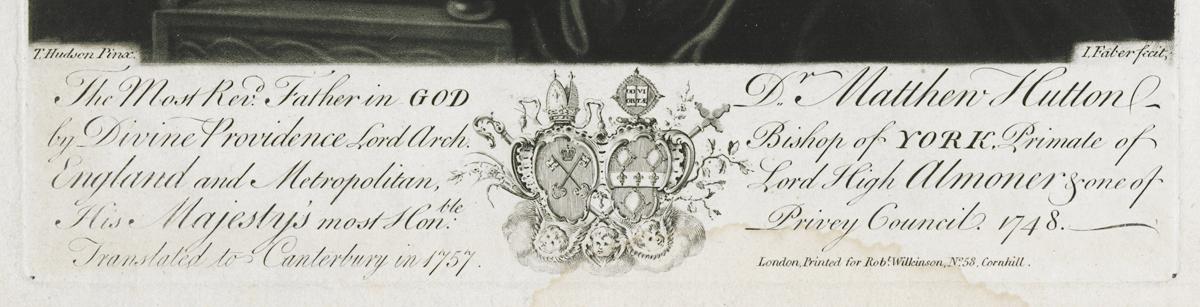 T. Hudson Pinx.
I. Faber fecit,
The Most Rev.d Father in GOD Dr. Matthew Hutton
by Divine Providence Lord Arch. Bishop of YORK, Primate of
England and Metropolitan, Lord High Almoner & one of
His Majesty's most Hon.ble Privey Council. 1748.
Translated to Canterbury in 1757.
London, Printed for Robt. Wilkinson, No. 58, Cornhill.